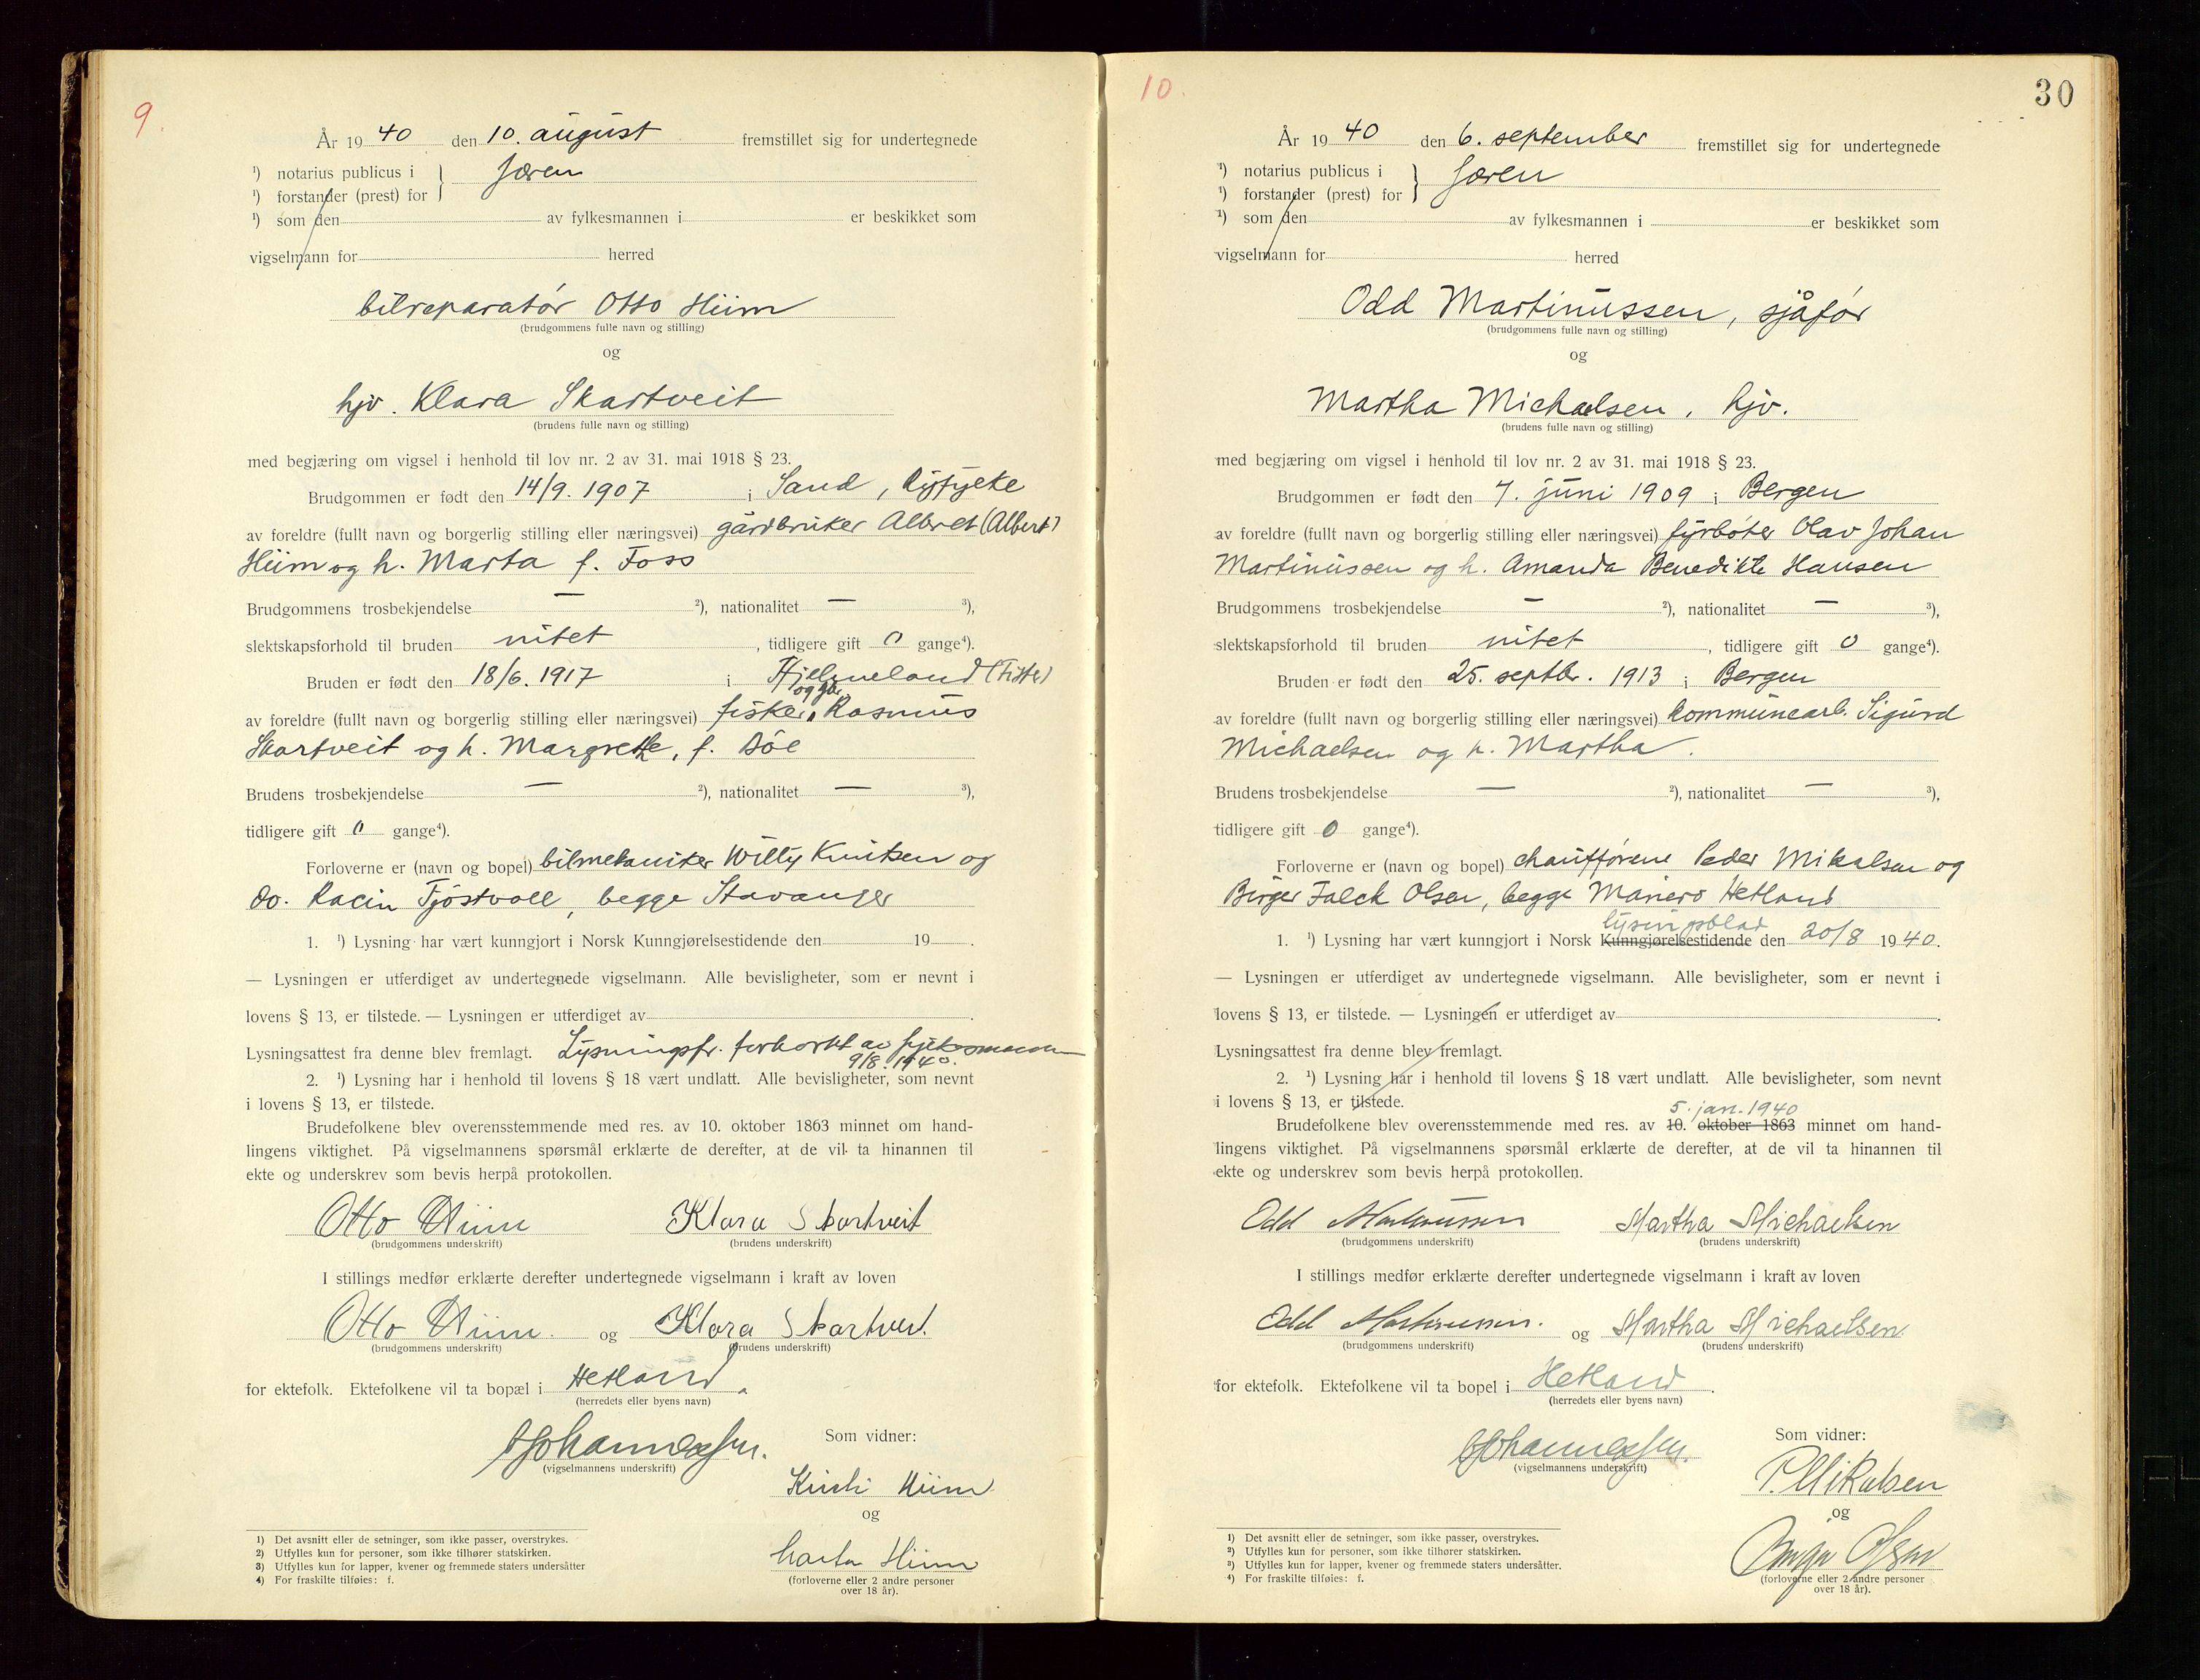 9.
År 19 40 den 10. august fremstillet sig for undertegnede
¹) notarius publicus i } Jæren
¹) forstander (prest) for
¹) som den av fylkesmannen i er beskikket som
vigselmann for herred
bilreparatør Otto Hiim
(brudgommens fulle navn og stilling)
og
hjv. Klara Skartveit
(brudens fulle navn og stilling)
med begjæring om vigsel i henhold til lov nr. 2 av 31. mai 1918 § 23.
Brudgommen er født den 14/9. 1907 i Sand, Ryfylke
av foreldre (fullt navn og borgerlig stilling eller næringsvei) gårdbruker Albret (Albert)
Hiim og h. Marta f. Foss
Brudgommens trosbekjendelse — ²), nationalitet — ³),
slektskapsforhold til bruden intet, tidligere gift 0 gange⁴).
Bruden er født den 18/6. 1917 i Hjelmeland (Fister)
og gbr.
av foreldre (fullt navn og borgerlig stilling eller næringsvei) fisker Rasmus
Skartveit og h. Margrethe, f. Bøe
Brudens trosbekjendelse — ²), nationalitet — ³),
tidligere gift 0 gange⁴).
Forloverne er (navn og bopel) bilmekaniker Willy Knutsen og
do. Racin Tjøstvoll, begge Stavanger
1. ¹) Lysning har vært kunngjort i Norsk Kunngjørelsestidende den 19 .
— Lysningen er utferdiget av undertegnede vigselmann. Alle bevisligheter, som er nevnt i
lovens § 13, er tilstede. — Lysningen er utferdiget av .
Lysningsattest fra denne blev fremlagt. Lysningsfr. forkortet av fylkesmannen
9/8. 1940.
2. ¹) Lysning har i henhold til lovens § 18 vært undlatt. Alle bevisligheter, som nevnt
i lovens § 13, er tilstede.
Brudefolkene blev overensstemmende med res. av 10. oktober 1863 minnet om hand-
lingens viktighet. På vigselmannens spørsmål erklærte de derefter, at de vil ta hinannen til
ekte og underskrev som bevis herpå protokollen.
Otto Hiim Klara Skartveit
(brudgommens underskrift) (brudens underskrift)
I stillings medfør erklærte derefter undertegnede vigselmann i kraft av loven
Otto Hiim og Klara Skartveit
(brudgommens underskrift) (brudens underskrift)
for ektefolk. Ektefolkene vil ta bopæl i Hetland.
(herredets eller byens navn)
Johannessen.
(vigselmannens underskrift)
Som vidner:
Kirsti Hiim
og
Marta Hiim
(forloverne eller 2 andre personer
over 18 år).
1) Det avsnitt eller de setninger, som ikke passer, overstrykes.
2) Utfylles kun for personer, som ikke tilhører statskirken.
3) Utfylles kun for lapper, kvener og fremmede staters undersåtter
4) For fraskilte tilføies: f.
10.
30
År 19 40 den 6. september fremstillet sig for undertegnede
¹) notarius publicus i } Jæren
¹) forstander (prest) for
¹) som den av fylkesmannen i er beskikket som
vigselmann for herred
Odd Martinussen, sjåfør
(brudgommens fulle navn og stilling)
og
Martha Michaelsen, hjv.
(brudens fulle navn og stilling)
med begjæring om vigsel i henhold til lov nr. 2 av 31. mai 1918 § 23.
Brudgommen er født den 7. juni 1909 i Bergen
av foreldre (fullt navn og borgerlig stilling eller næringsvei) fyrbøter Olav Johan
Martinussen og h. Amanda Benedikte Hansen
Brudgommens trosbekjendelse — ²), nationalitet — ³),
slektskapsforhold til bruden intet, tidligere gift 0 gange⁴).
Bruden er født den 25. septbr. 1913 i Bergen
av foreldre (fullt navn og borgerlig stilling eller næringsvei) kommunearb. Sigurd
Michaelsen og h. Martha.
Brudens trosbekjendelse — ²), nationalitet — ³),
tidligere gift 0 gange⁴).
Forloverne er (navn og bopel) chaufførene Peder Mikalsen og
Birger Falck Olsen, begge Mariero Hetland
lysingsblad
1. ¹) Lysning har vært kunngjort i Norsk Kunngjørelsestidende den 20/8 19 40.
— Lysningen er utferdiget av undertegnede vigselmann. Alle bevisligheter, som er nevnt i
lovens § 13, er tilstede. — Lysningen er utferdiget av .
Lysningsattest fra denne blev fremlagt.
2. ¹) Lysning har i henhold til lovens § 18 vært undlatt. Alle bevisligheter, som nevnt
i lovens § 13, er tilstede.
5. jan. 1940
Brudefolkene blev overensstemmende med res. av 10. oktober 1863 minnet om hand-
lingens viktighet. På vigselmannens spørsmål erklærte de derefter, at de vil ta hinannen til
ekte og underskrev som bevis herpå protokollen.
Odd Martinussen Martha Michaelsen
(brudgommens underskrift) (brudens underskrift)
I stillings medfør erklærte derefter undertegnede vigselmann i kraft av loven
Odd Martinussen. og Martha Michaelsen.
(brudgommens underskrift) (brudens underskrift)
for ektefolk. Ektefolkene vil ta bopel i Hetland.
(herredets eller byens navn)
Johannessen.
(vigselmannens underskrift)
Som vidner:
P. Mikalsen
og
Birger Olsen
(forloverne eller 2 andre personer
over 18 år).
1) Det avsnitt eller de setninger, som ikke passer, overstrykes.
2) Utfylles kun for personer, som ikke tilhører statskirken.
3) Utfylles kun for lapper, kvener og fremmede staters undersåtter.
4) For fraskilte tilføies: f.